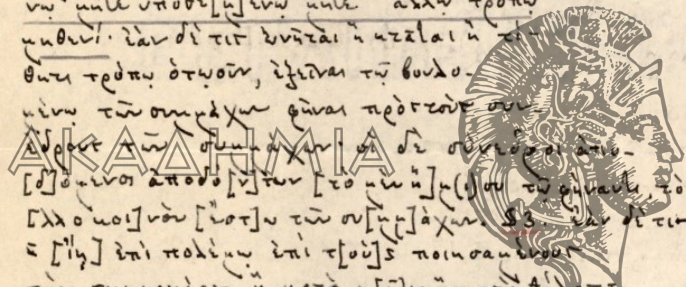 νῳ μήτε ὑποθε[μ]ένῳ μήτε ἄλλῳ τρόπῳ
μηθενί· ἐὰν δέ τις ὠνῆται ἢ κτᾶται ἢ τι-
θῆται τρόπῳ ὁτῳοῦν, ἐξεῖναι τῷ βουλο-
μένῳ τῶν συμμάχων φῆναι πρὸς τοὺς συν-
έδρους τῶν συμμάχων· οἱ δὲ σύνεδροι ἀπο-
ΑΚΑΔΗΜΙΑ
[δ]όμενοι ἀποδό[ν]των [τὸ μὲν ἥ]μ(ι)συ τῷ φήναντι, τὸ
[ἄλλο κοι]νὸν [ἔστ]ω τῶν συ[μμ]άχων. § 3. ἐὰν δέ τις
[ἴῃ] ἐπὶ πολέμῳ ἐπὶ τ[οὺ]ς ποιησαμένους